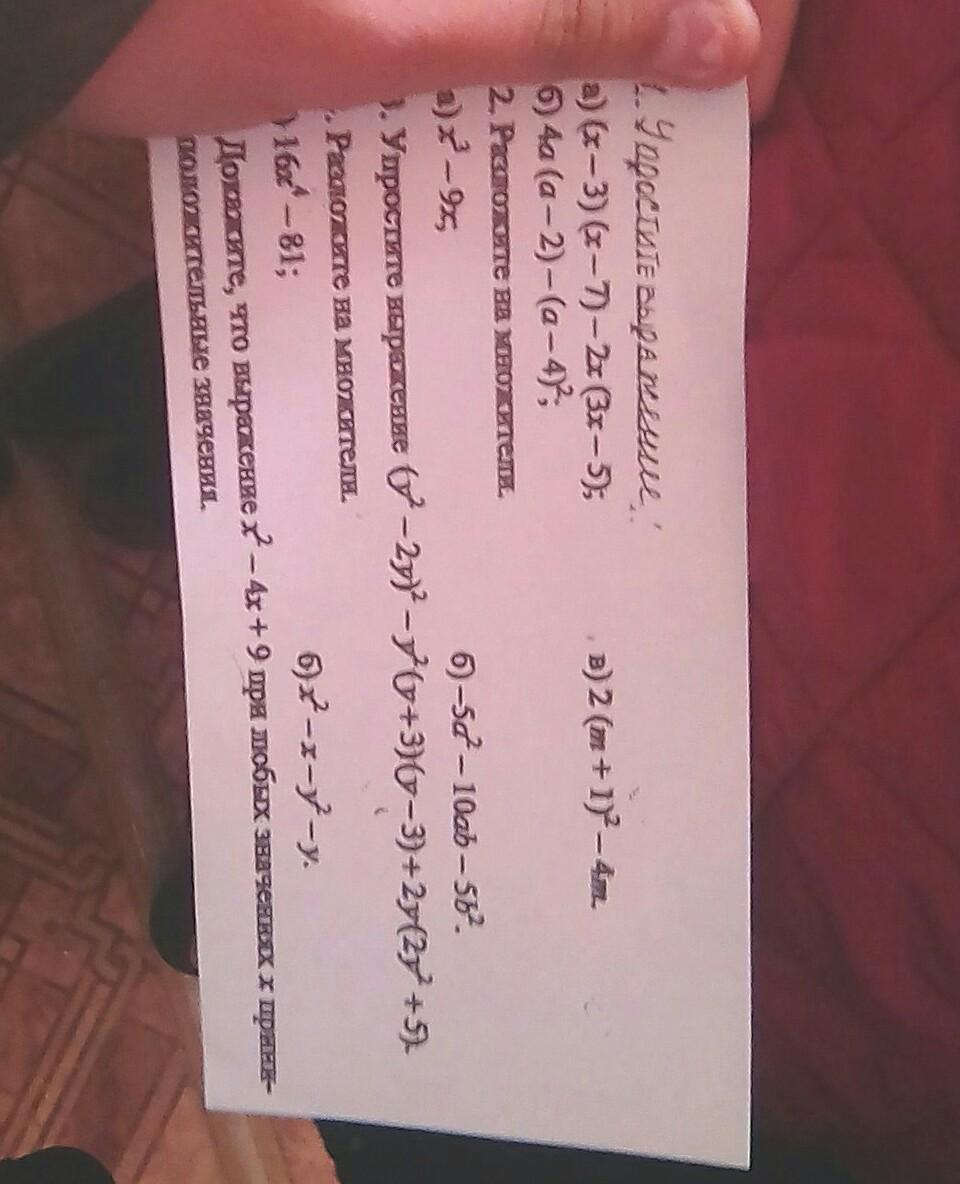 1. Упростите выражение:
а) (x – 3) (x – 7) – 2x (3x – 5); в) 2 (m + 1)² – 4m.
б) 4a (a – 2) – (a – 4)²;
2. Разложите на множители.
а) x³ – 9x; б) –5a² – 10ab – 5b².
3. Упростите выражение (y² – 2y)² – y²(y + 3)(y – 3) + 2y(2y² + 5).
. Разложите на множители.
) 16x⁴ – 81; б) x² – x – y² – y.
Докажите, что выражение x² – 4x + 9 при любых значениях x прини-
положительные значения.